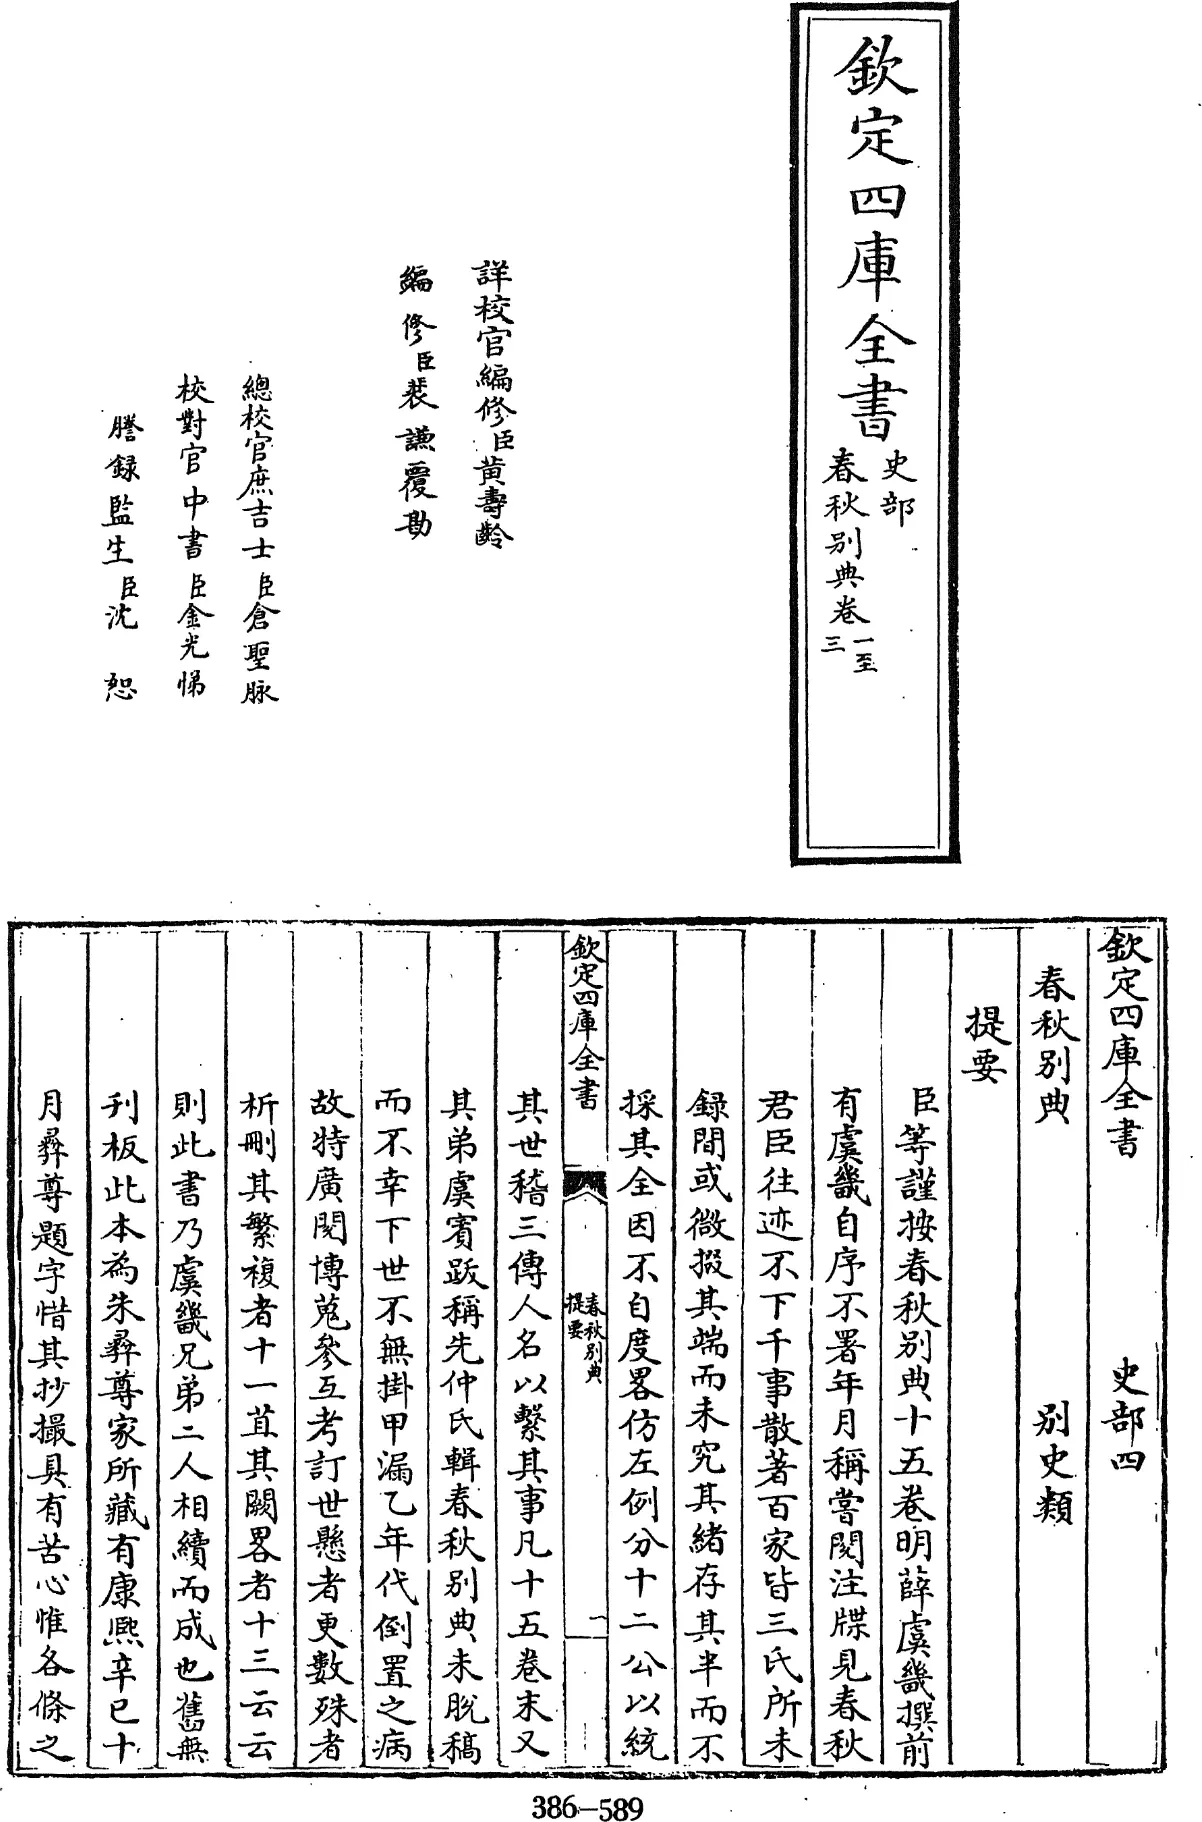 欽定四庫全書
史部
春秋别典卷
一至
三
詳校官編修臣黄壽齡
編修臣裴謙覆勘
總校官庶吉士臣倉聖脉
校對官中書臣金光悌
謄録監生臣沈恕
欽定四庫全書 史部四
春秋别典 别史類
提要
臣等謹按春秋别典十五卷明薛虞畿撰前
有虞畿自序不署年月稱嘗閱注牒見春秋
君臣往迹不下千事散著百家皆三氏所未
録間或微掇其端而未究其緒存其半而不
採其全因不自度畧仿左例分十二公以統
欽定四庫全書
春秋别典
提要
一
其世稽三傳人名以繫其事凡十五卷末又
其弟虞賓跋稱先仲氏輯春秋别典未脱稿
而不幸下世不無掛甲漏乙年代倒置之病
故特廣閱博蒐參互考訂世懸者更數殊者
析刪其繁複者十一苴其闕畧者十三云云
則此書乃虞畿兄弟二人相續而成也舊無
刋板此本為朱彞尊家所藏有康熙辛巳十
月彞尊題字惜其抄撮具有苦心惟各條之
386-589